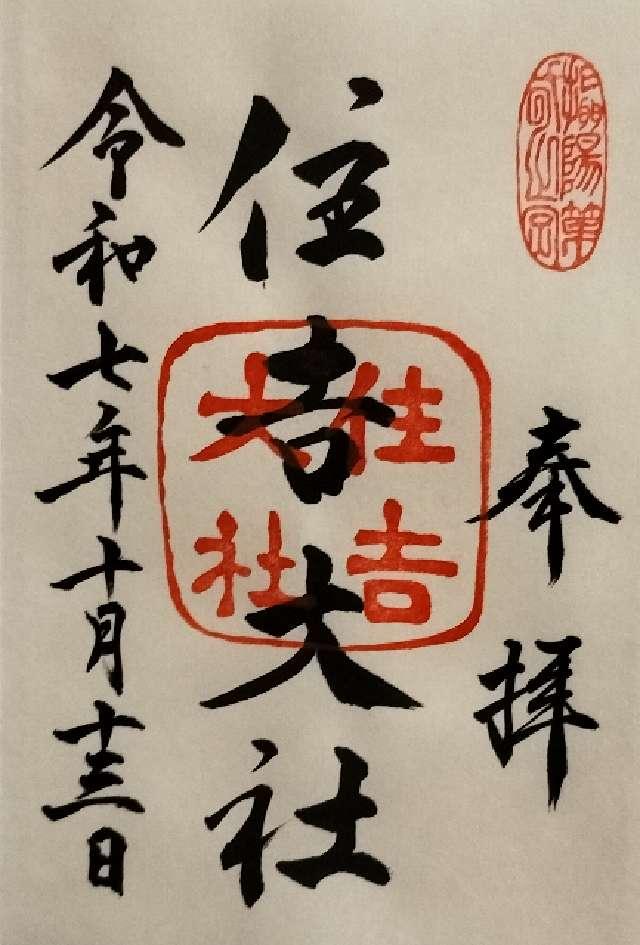 攝陽第
之宮
奉拝
住吉大社
住吉
大社
令和七年十月十三日